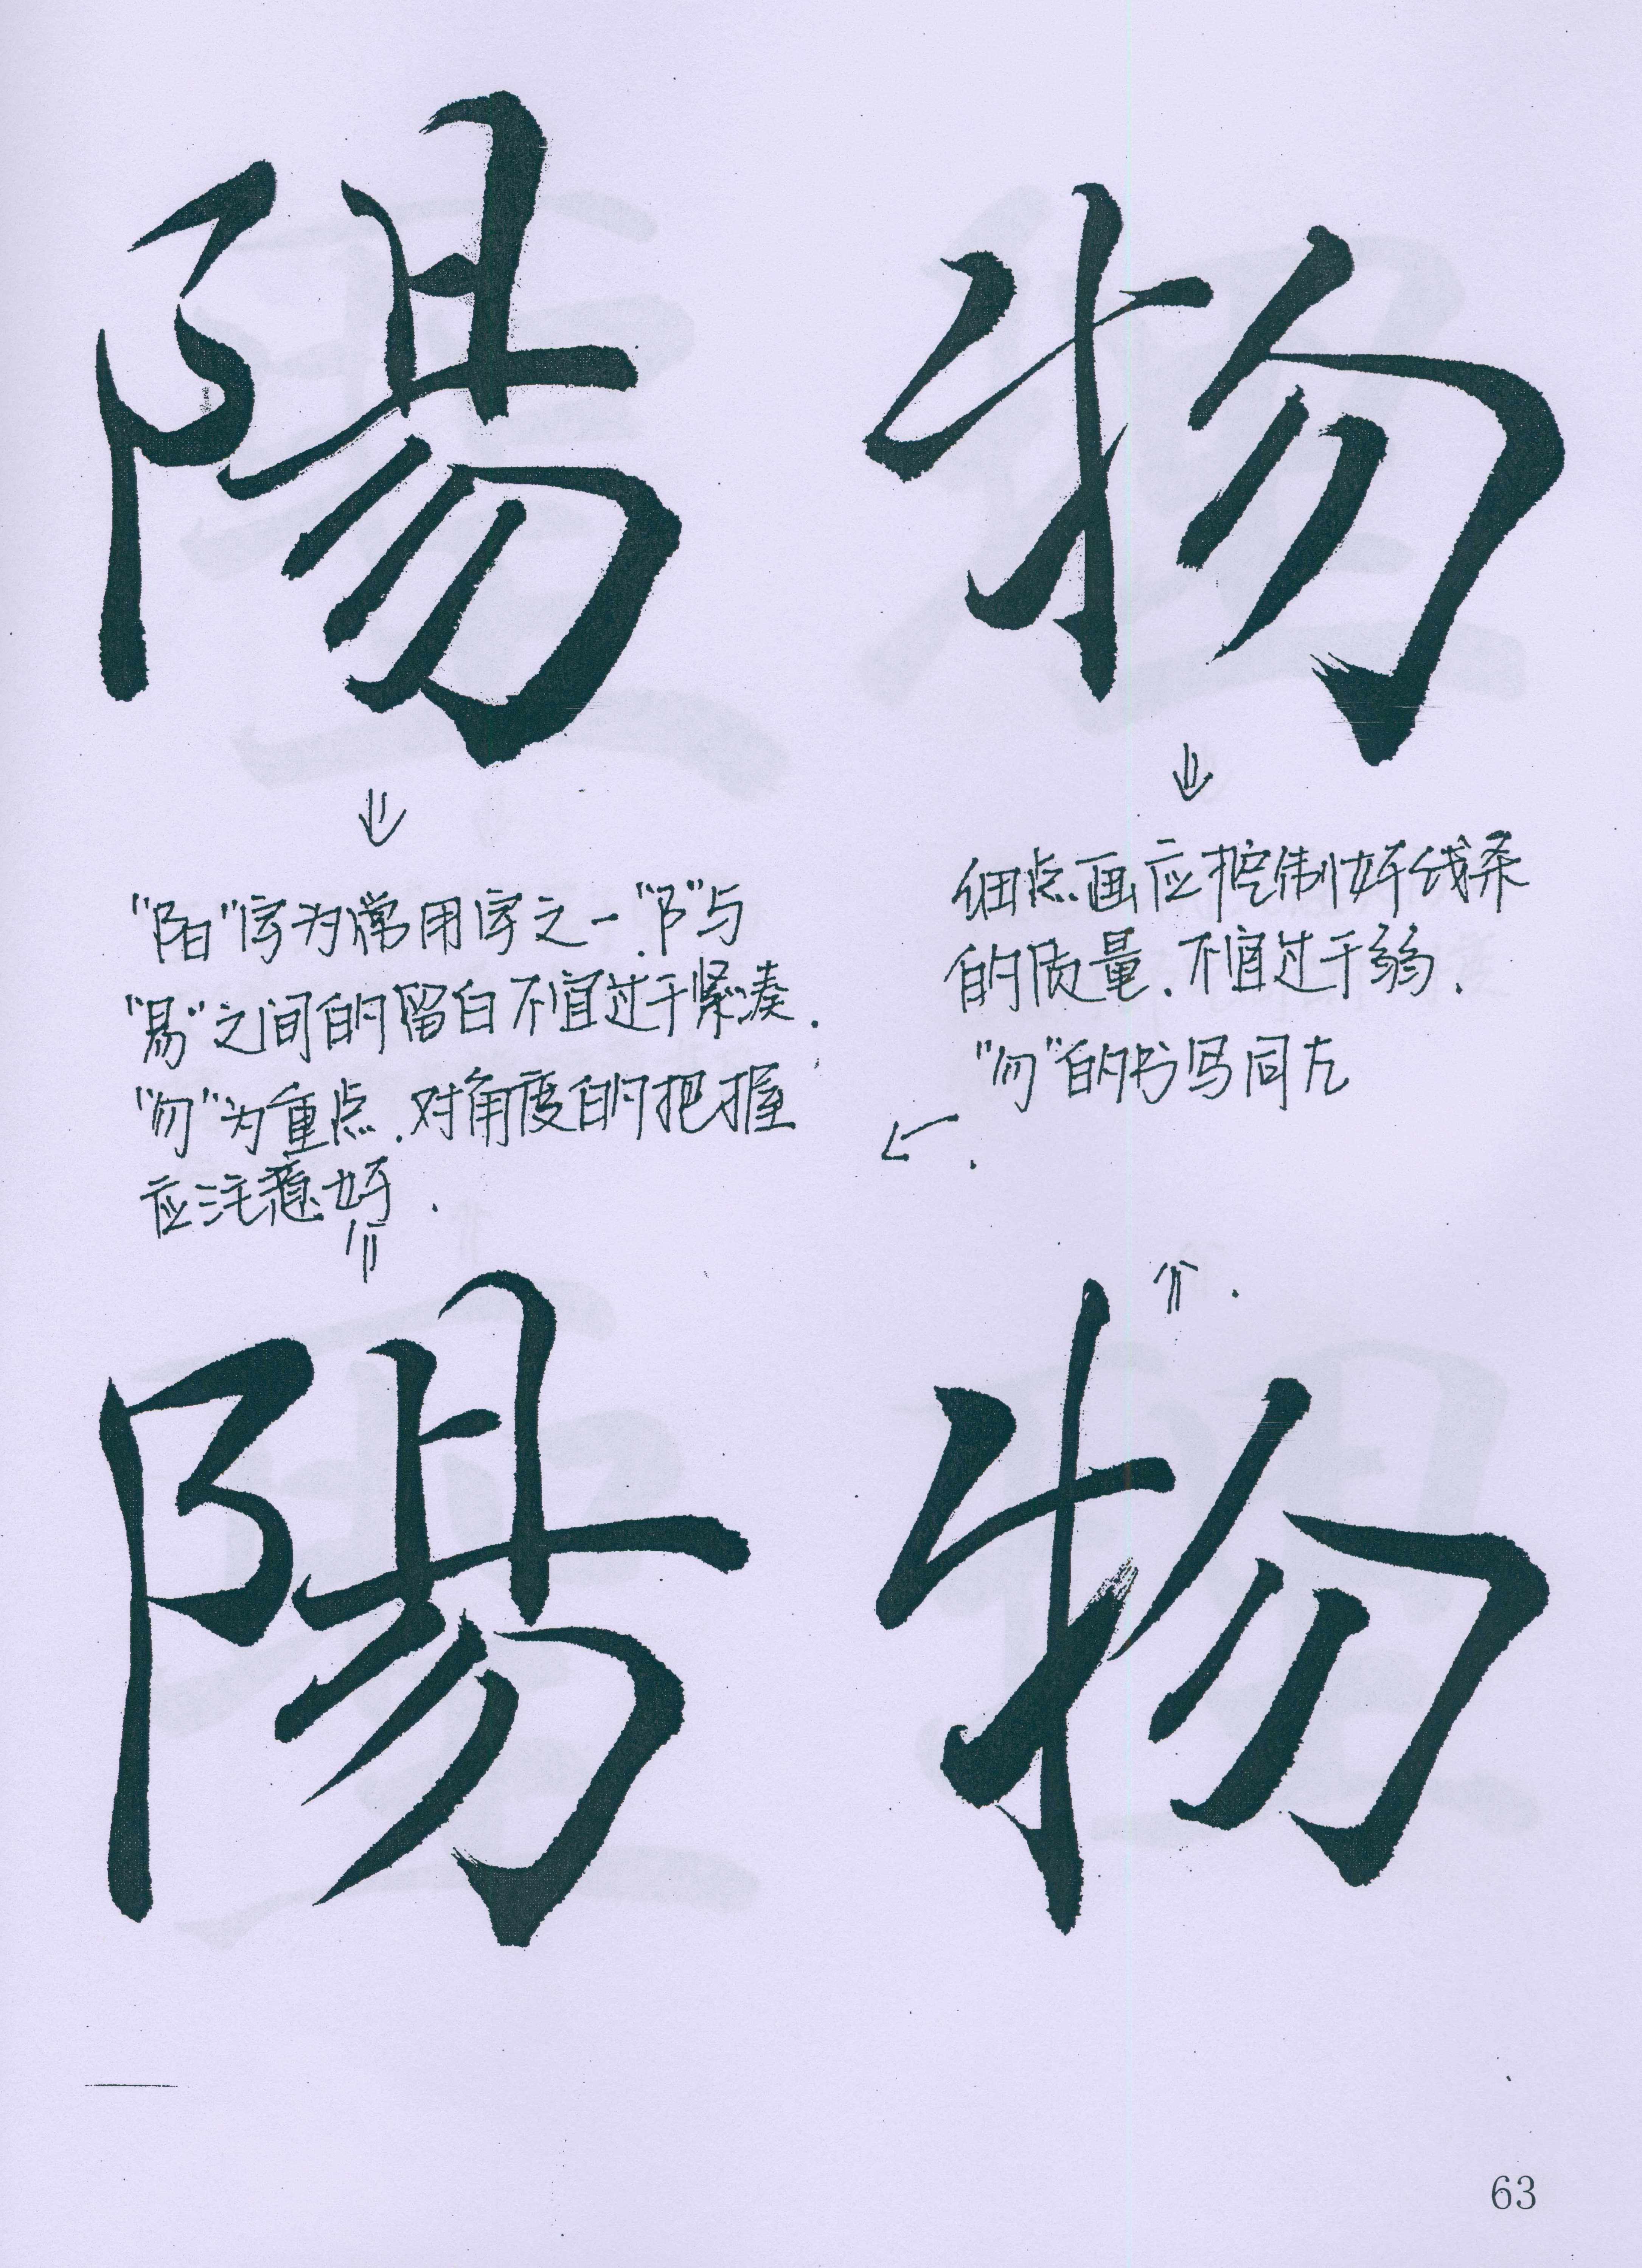 陽
物
"阳"字为常用字之一."阝"与
"昜"之间的留白不宜过于紧凑.
"勿"为重点.对角度的把握
应注意好.
细点画应控制好线条
的质量.不宜过于弱.
"勿"的书写同左
陽
物
63